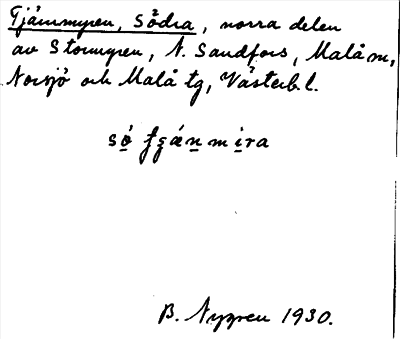 Tjärnmyren, Södra, norra delen
av Stormyren, N. Sandfors, Malå sn,
Norsjö och Malå tg, Västerb. l.
B. Nygren 1930.